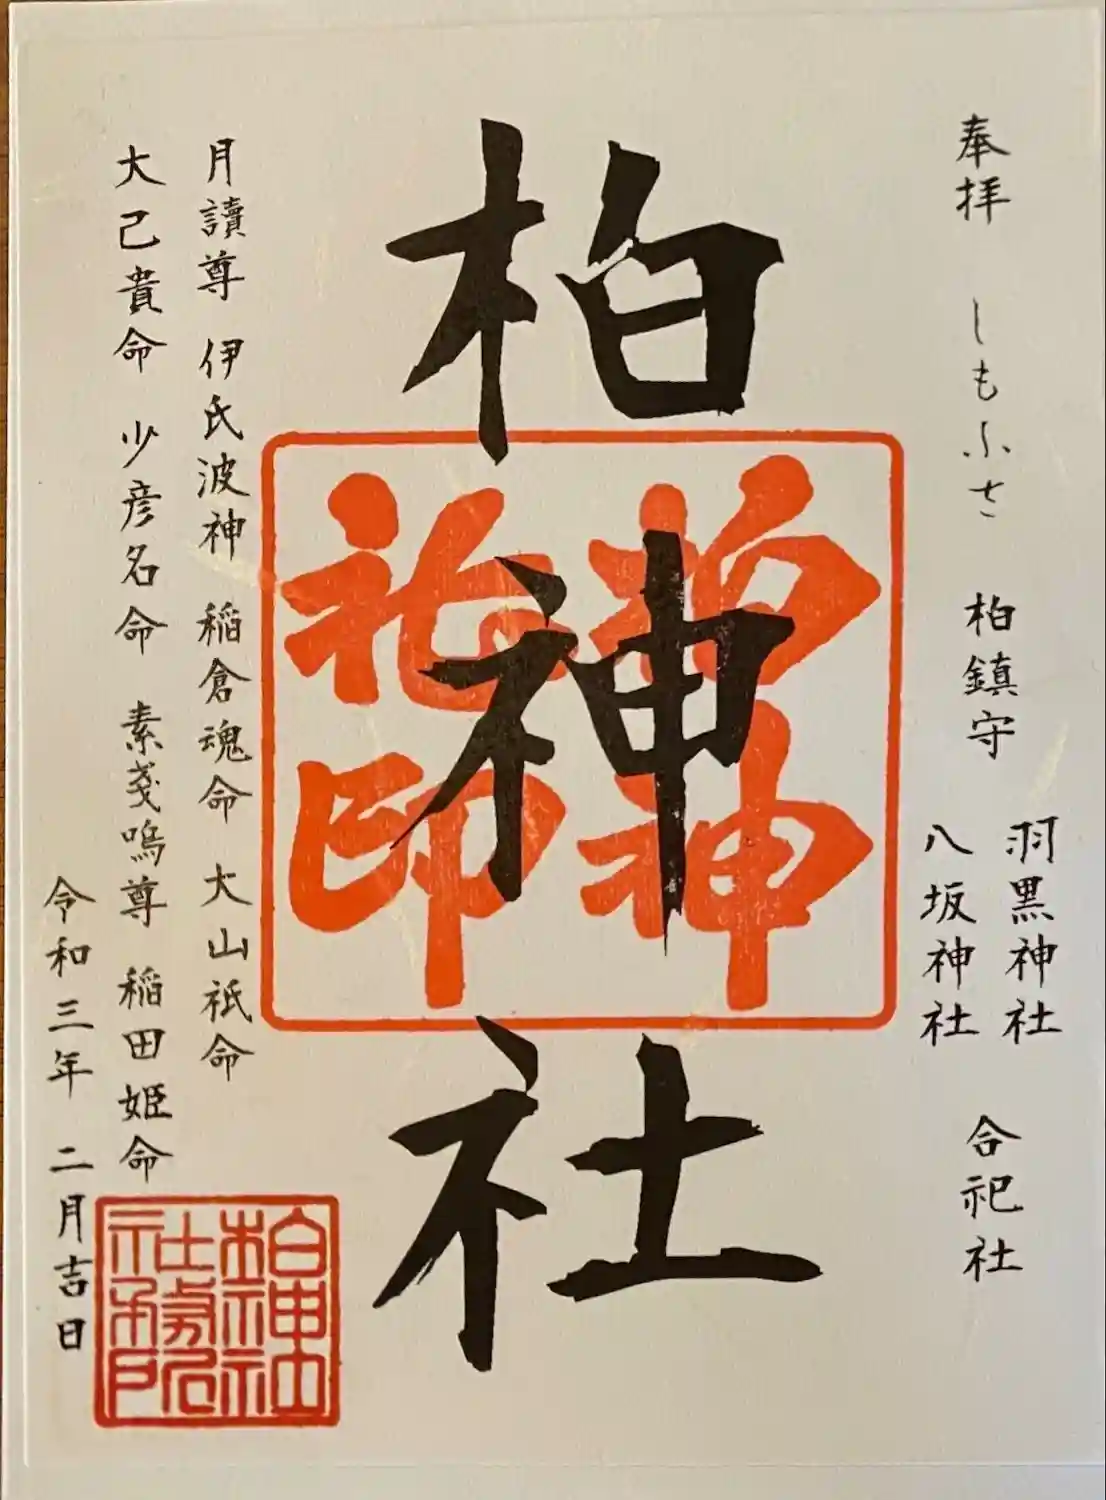 奉拝 しもふさ 柏鎮守
羽黒神社
八坂神社
合祀社
柏神社
柏神社印
月讀尊 伊氏波神 稲倉魂命 大山祇命
大己貴命 少彦名命 素戔嗚尊 稲田姫命
令和三年 二月吉日
柏神社
社務所